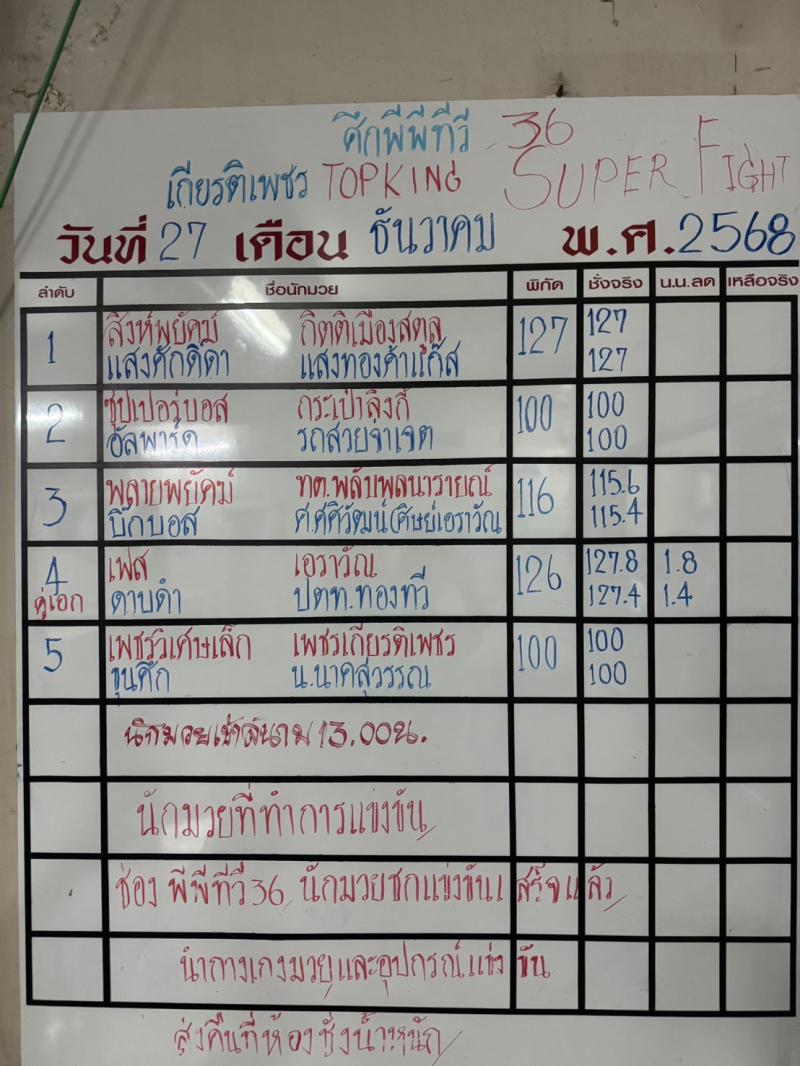 ศึกพีพีทีวี 36
เกียรติเพชร TOPKING SUPER FIGHT
วันที่ 27 เดือน ธันวาคม พ.ศ. 2568
ลำดับ ชื่อนักมวย พิกัด ชั่งจริง น.น.ลด เหลือจริง
1 สิงห์พยัคฆ์ กิตติเมืองสตูล 127 127
แสงศักดิดา แสงทองคำแก๊ส 127
2 ซุปเปอร์บอส กระเป๋าลิงกี้ 100 100
อัลพาร์ด รถสวยจ่าเจต 100
3 พลายพยัคฆ์ ทต.พลับพลนารายณ์ 116 115.6
บิ๊กบอส ศ.ศศิวัฒน์(ศิษย์เอราวัณ 115.4
4 เฟส เอราวัณ 126 127.8 1.8
คู่เอก ดาบดำ ปตท.ทองทวี 127.4 1.4
5 เพชรวิเศษเล็ก เพชรเกียรติเพชร 100 100
ขุนศึก น.นาคสุวรรณ 100
นักมวยเข้าสนาม 13.00น.
นักมวยที่ทำการแข่งขัน
ช่อง พีพีทีวี 36 นักมวยชกแข่งขันเสร็จแล้ว
นำกางเกงมวยและอุปกรณ์แข่งขัน
ส่งคืนที่ห้องชั่งน้ำหนัก